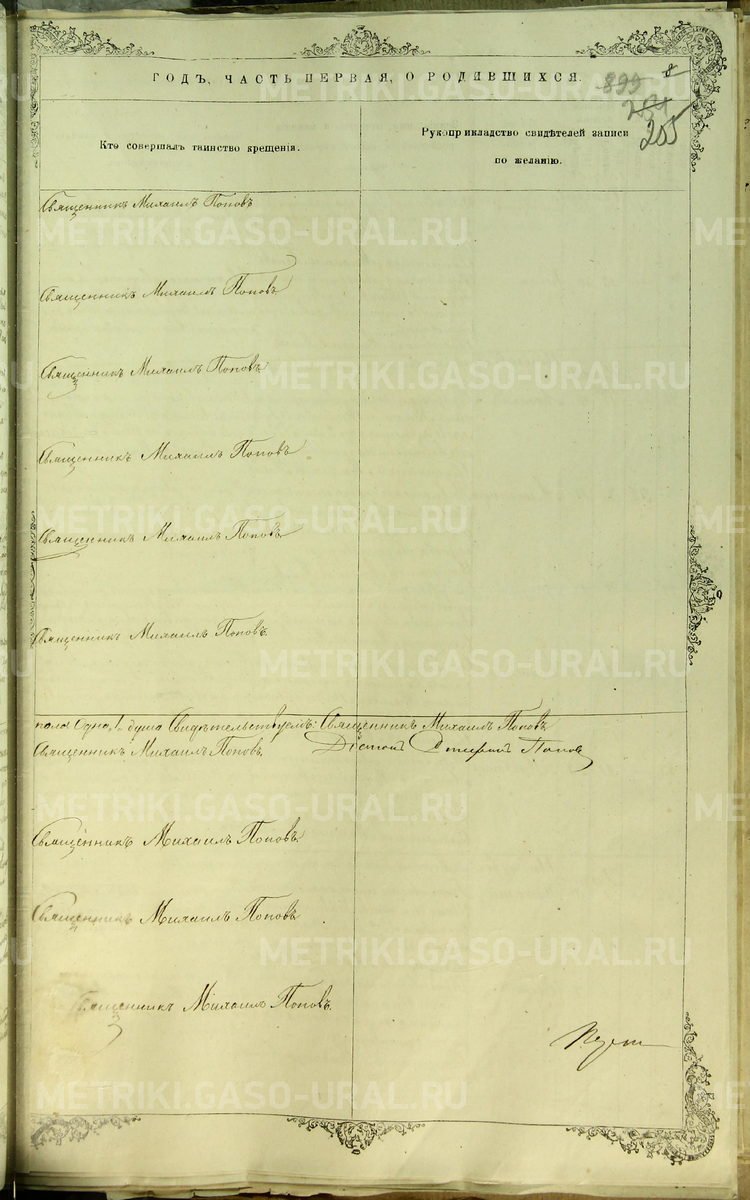 ГОДЪ, ЧАСТЬ ПЕРВАЯ, О РОДИВШИХСЯ.
899 8
205
Кто совершалъ таинство крещенія.
Рукоприкладство свидѣтелей записи
по желанію.
Священникъ Михаилъ Поповъ
Священникъ Михаилъ Поповъ
Священникъ Михаилъ Поповъ
Священникъ Михаилъ Поповъ
Священникъ Михаилъ Поповъ
Священникъ Михаилъ Поповъ.
пола одна 1 душа Свидѣтельствуемъ: Священникъ Михаилъ Поповъ
Священникъ Михаилъ Поповъ.
Попов
Священникъ Михаилъ Поповъ.
Священникъ Михаилъ Поповъ
Священникъ Михаилъ Поповъ.
METRIKI.GASO-URAL.RU